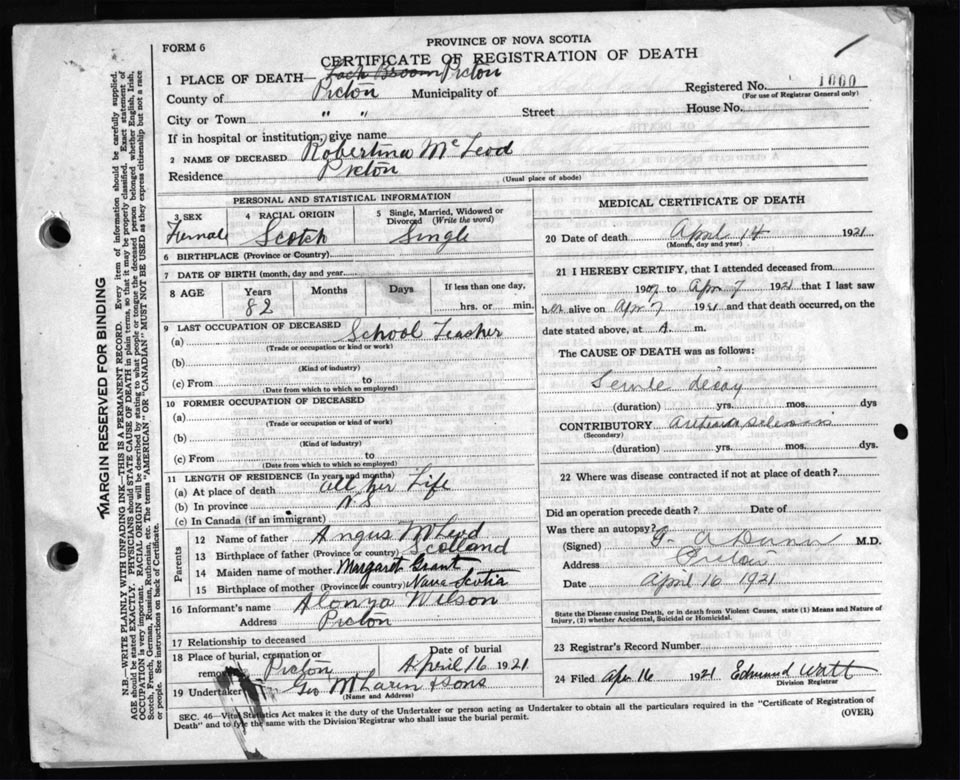 FORM 6
PROVINCE OF NOVA SCOTIA
CERTIFICATE OF REGISTRATION OF DEATH
1 PLACE OF DEATH— Pictou
Registered No. 1000
(For use of Registrar General only)
County of Pictou Municipality of
City or Town " " Street House No.
If in hospital or institution, give name
2 NAME OF DECEASED Robertina McLeod
Residence Pictou
(Usual place of abode)
PERSONAL AND STATISTICAL INFORMATION
3 SEX Female
4 RACIAL ORIGIN Scotch
5 Single, Married, Widowed or Divorced (Write the word) Single
6 BIRTHPLACE (Province or Country)
7 DATE OF BIRTH (month, day and year)
8 AGE Years 82 Months Days If less than one day, hrs. or min.
9 LAST OCCUPATION OF DECEASED
(a) School Teacher
(Trade or occupation or kind or work)
(b)
(Kind of industry)
(c) From to
(Date from which to which so employed)
10 FORMER OCCUPATION OF DECEASED
(a)
(Trade or occupation or kind of work)
(b)
(Kind of industry)
(c) From to
(Date from which to which so employed)
11 LENGTH OF RESIDENCE (In years and months)
(a) At place of death All her Life
(b) In province N S
(c) In Canada (if an immigrant)
Parents
12 Name of father Angus McLeod
13 Birthplace of father (Province or country) Scotland
14 Maiden name of mother Margaret Grant
15 Birthplace of mother (Province or country) Nova Scotia
16 Informant's name Alonza Wilson
Address Pictou
17 Relationship to deceased
18 Place of burial, cremation or Pictou
Date of burial April 16, 1921
19 Undertaker Geo McLaren & Sons
(Name and Address)
MEDICAL CERTIFICATE OF DEATH
20 Date of death April 14 1921
(Month, day and year)
21 I HEREBY CERTIFY, that I attended deceased from
1907 to Apr 7 1921 that I last saw
her alive on Apr 7 1921 and that death occurred, on the
date stated above, at A m.
The CAUSE OF DEATH was as follows:
Senile decay
(duration) yrs. mos. dys
CONTRIBUTORY Arteriosclerosis
(Secondary)
(duration) yrs. mos. dys.
22 Where was disease contracted if not at place of death?
Did an operation precede death? Date of
Was there an autopsy?
(Signed) G. A Dunn M.D.
Address Pictou
Date April 16 1921
State the Disease causing Death, or in death from Violent Causes, state (1) Means and Nature of
Injury, (2) whether Accidental, Suicidal or Homicidal.
23 Registrar's Record Number
24 Filed Apr 16 1921 Edmund Watt
Division Registrar
SEC. 46—Vital Statistics Act makes it the duty of the Undertaker or person acting as Undertaker to obtain all the particulars required in the "Certificate of Registration of
Death" and to file the same with the Division Registrar who shall issue the burial permit.
(OVER)
MARGIN RESERVED FOR BINDING
N.B.—WRITE PLAINLY WITH UNFADING INK—THIS IS A PERMANENT RECORD. Every item of information should be carefully supplied.
AGE should be stated EXACTLY. PHYSICIANS should STATE CAUSE OF DEATH in plain terms, so that it may be properly classified. Exact statement of
OCCUPATION is very important. RACIAL ORIGIN will be described by stating to what people or tongue the deceased person belonged whether English, Irish,
Scotch, French, German, Russian, Ruthenian, etc. The terms "AMERICAN" OR "CANADIAN" MUST NOT BE USED as they express citizenship but not a race
or people. See instructions on back of Certificate.